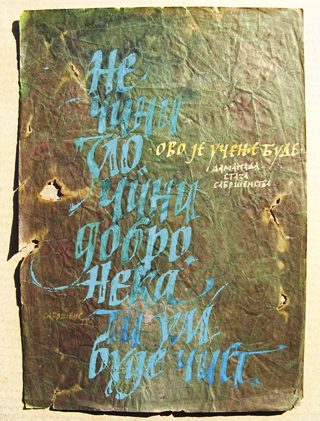 Не
чини
зло
чини
добро.
Нека
ти ум
буде чист.
ОВО ЈЕ УЧЕЊЕ БУДЕ
ДАМАПАДА
СТАЗА
САВРШЕНСТВА